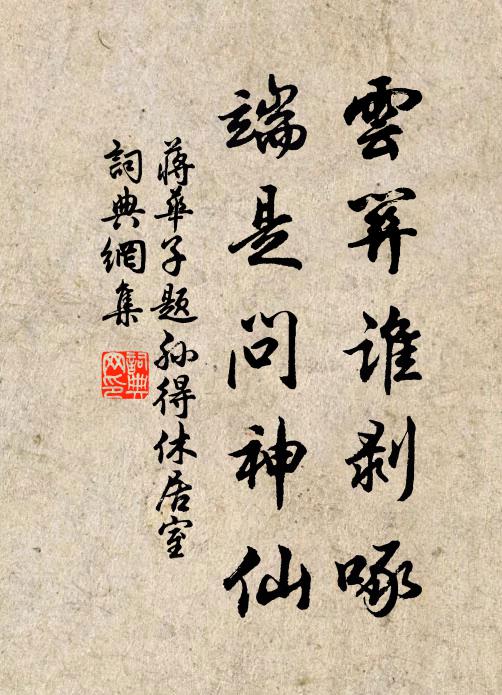 雲關誰剝啄
端是問神仙
蔣華子題孫得休居室
詞典網集
詞典網印